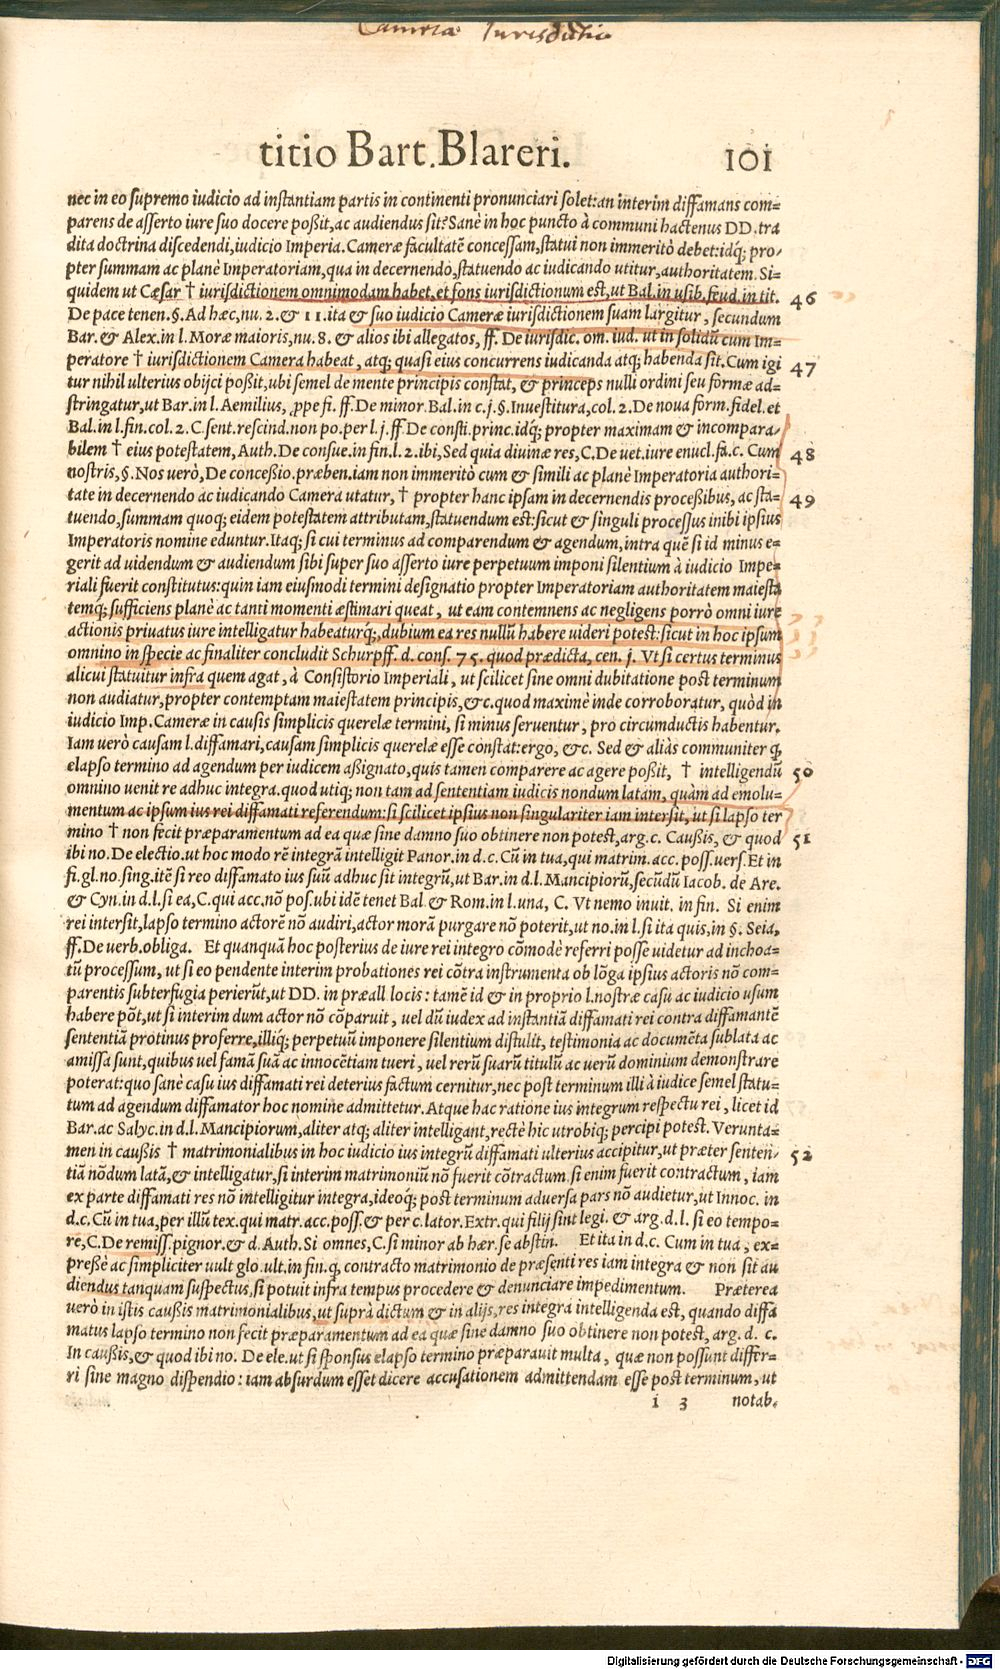 Cameræ Iurisdictio
titio Bart. Blareri. 101
nec in eo supremo iudicio ad instantiam partis in continenti pronunciari solet: an interim diffamans com=
parens de asserto iure suo docere poßit, ac audiendus sit? Sanè in hoc puncto à communi hactenus DD. tra
dita doctrina discedendi, iudicio Imperia. Cameræ facultatē concessam, statui non immeritò debet: idq́; pro=
pter summam ac planè Imperatoriam, qua in decernendo, statuendo ac iudicando utitur, authoritatem. Si=
quidem ut Cæsar † iurisdictionem omnimodam habet, et fons iurisdictionum est, ut Bal. in usib. feud. in tit. 46
De pace tenen. §. Ad hæc, nu. 2. & 11. ita & suo iudicio Cameræ iurisdictionem suam largitur, secundum
Bar. & Alex. in l. Moræ maioris, nu. 8. & alios ibi allegatos, ff. De iurisdic. om. iud. ut in solidū cum Im=
peratore † iurisdictionem Camera habeat, atq; quasi eius concurrens iudicanda atq; habenda sit. Cum igi 47
tur nihil ulterius obijci poßit, ubi semel de mente principis constat, & princeps nulli ordini seu formæ ad=
stringatur, ut Bar. in l. Aemilius, ꝓpe fi. ff. De minor. Bal. in c. j. §. Inuestitura, col. 2. De noua form. fidel. et
Bal. in l. fin. col. 2. C. sent. rescind. non po. per l. j. ff. De consti. princ. idq́; propter maximam & incompara=
bilem † eius potestatem, Auth. De consue. in fin. l. 2. ibi, Sed quia diuinæ res, C. De uet. iure enucl. fa. c. Cum 48
nostris, §. Nos uerò, De conceßio. præben. iam non immeritò cum & simili ac planè Imperatoria authori=
tate in decernendo ac iudicando Camera utatur, † propter hanc ipsam in decernendis proceßibus, ac sta= 49
tuendo, summam quoq; eidem potestatem attributam, statuendum est: sicut & singuli processus inibi ipsius
Imperatoris nomine eduntur. Itaq; si cui terminus ad comparendum & agendum, intra quē si id minus e=
gerit ad uidendum & audiendum sibi super suo asserto iure perpetuum imponi silentium à iudicio Impe=
riali fuerit constitutus: quin iam eiusmodi termini designatio propter Imperatoriam authoritatem maiesta
temq́; sufficiens planè ac tanti momenti æstimari queat, ut eam contemnens ac negligens porrò omni iure
actionis priuatus iure intelligatur habeaturq́;, dubium ea res nullū habere uideri potest: sicut in hoc ipsum
omnino in specie ac finaliter concludit Schurpff. d. cons. 75. quod prædicta, cen. j. Vt si certus terminus
alicui statuitur infra quem agat, à Consistorio Imperiali, ut scilicet sine omni dubitatione post terminum
non audiatur, propter contemptam maiestatem principis, &c. quod maximè inde corroboratur, quòd in
iudicio Imp. Cameræ in causis simplicis querelæ termini, si minus seruentur, pro circumductis habentur.
Iam uerò causam l. diffamari, causam simplicis querelæ esse constat: ergo, &c. Sed & aliàs communiter q̨
elapso termino ad agendum per iudicem aßignato, quis tamen comparere ac agere poßit, † intelligendū 50
omnino uenit re adhuc integra. quod utiq; non tam ad sententiam iudicis nondum latam, quàm ad emolu=
mentum ac ipsum ius rei diffamati referendum: si scilicet ipsius non singulariter iam intersit, ut si lapso ter
mino † non fecit præparamentum ad ea quæ sine damno suo obtinere non potest, arg. c. Caußis, & quod 51
ibi no. De electio. ut hoc modo rē integrā intelligit Panor. in d. c. Cū in tua, qui matrim. acc. poss. vers. Et in
fi. gl. no. sing. itē si reo diffamato ius suū adhuc sit integrū, ut Bar. in d. l. Mancipiorū, secūdū Iacob. de Are.
& Cyn. in d. l. si ea, C. qui acc. nō pos. ubi idē tenet Bal. & Rom. in l. una, C. Vt nemo inuit. in fin. Si enim
rei intersit, lapso termino actorē nō audiri, actor morā purgare nō poterit, ut no. in l. si ita quis, in §. Seia,
ff. De verb. obliga. Et quanquā hoc posterius de iure rei integro cōmodè referri posse uidetur ad inchoa=
tū processum, ut si eo pendente interim probationes rei cōtra instrumenta ob lōga ipsius actoris nō com=
parentis subterfugia perierūt, ut DD. in præall. locis: tamē id & in proprio l. nostræ casu ac iudicio usum
habere pōt, ut si interim dum actor nō cōparuit, vel dū iudex ad instantiā diffamati rei contra diffamantē
sententiā protinus proferre, illiq́; perpetuū imponere silentium distulit, testimonia ac documēta sublata ac
amissa sunt, quibus vel famā suā ac innocētiam tueri, vel rerū suarū titulū ac verū dominium demonstrare
poterat: quo sanè casu ius diffamati rei deterius factum cernitur, nec post terminum illi à iudice semel statu=
tum ad agendum diffamator hoc nomine admittetur. Atque hac ratione ius integrum respectu rei, licet id
Bar. ac Salyc. in d. l. Mancipiorum, aliter atq; aliter intelligant, rectè hic utrobiq; percipi potest. Verunta=
men in caußis † matrimonialibus in hoc iudicio ius integrū diffamati ulterius accipitur, ut præter senten= 52
tiā nōdum latā, & intelligatur, si interim matrimoniū nō fuerit cōtractum. si enim fuerit contractum, iam
ex parte diffamati res nō intelligitur integra, ideoq́; post terminum aduersa pars nō audietur, ut Innoc. in
d. c. Cū in tua, per illū tex. qui matr. acc. poss. & per c. lator. Extr. qui filij sint legi. & arg. d. l. si eo tempo=
re, C. De remiss. pignor. & d. Auth. Si omnes, C. si minor ab hær. se abstin. Et ita in d. c. Cum in tua, ex=
preßè ac simpliciter uult glo. ult. in fin. q̨ contracto matrimonio de præsenti res iam integra & non sit au
diendus tanquam suspectus, si potuit infra tempus procedere & denunciare impedimentum. Præterea
uerò in istis caußis matrimonialibus, ut suprà dictum & in alijs, res integra intelligenda est, quando diffa
matus lapso termino non fecit præparamentum ad ea quæ sine damno suo obtinere non potest, arg. d. c.
In caußis, & quod ibi no. De ele. ut si sponsus elapso termino præparauit multa, quæ non possunt differ=
ri sine magno dispendio: iam absurdum esset dicere accusationem admittendam esse post terminum, ut
i 3 notab.
Digitalisierung gefördert durch die Deutsche Forschungsgemeinschaft - DFG